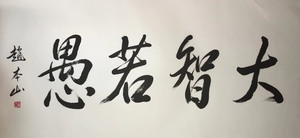 大智若愚
趙本山